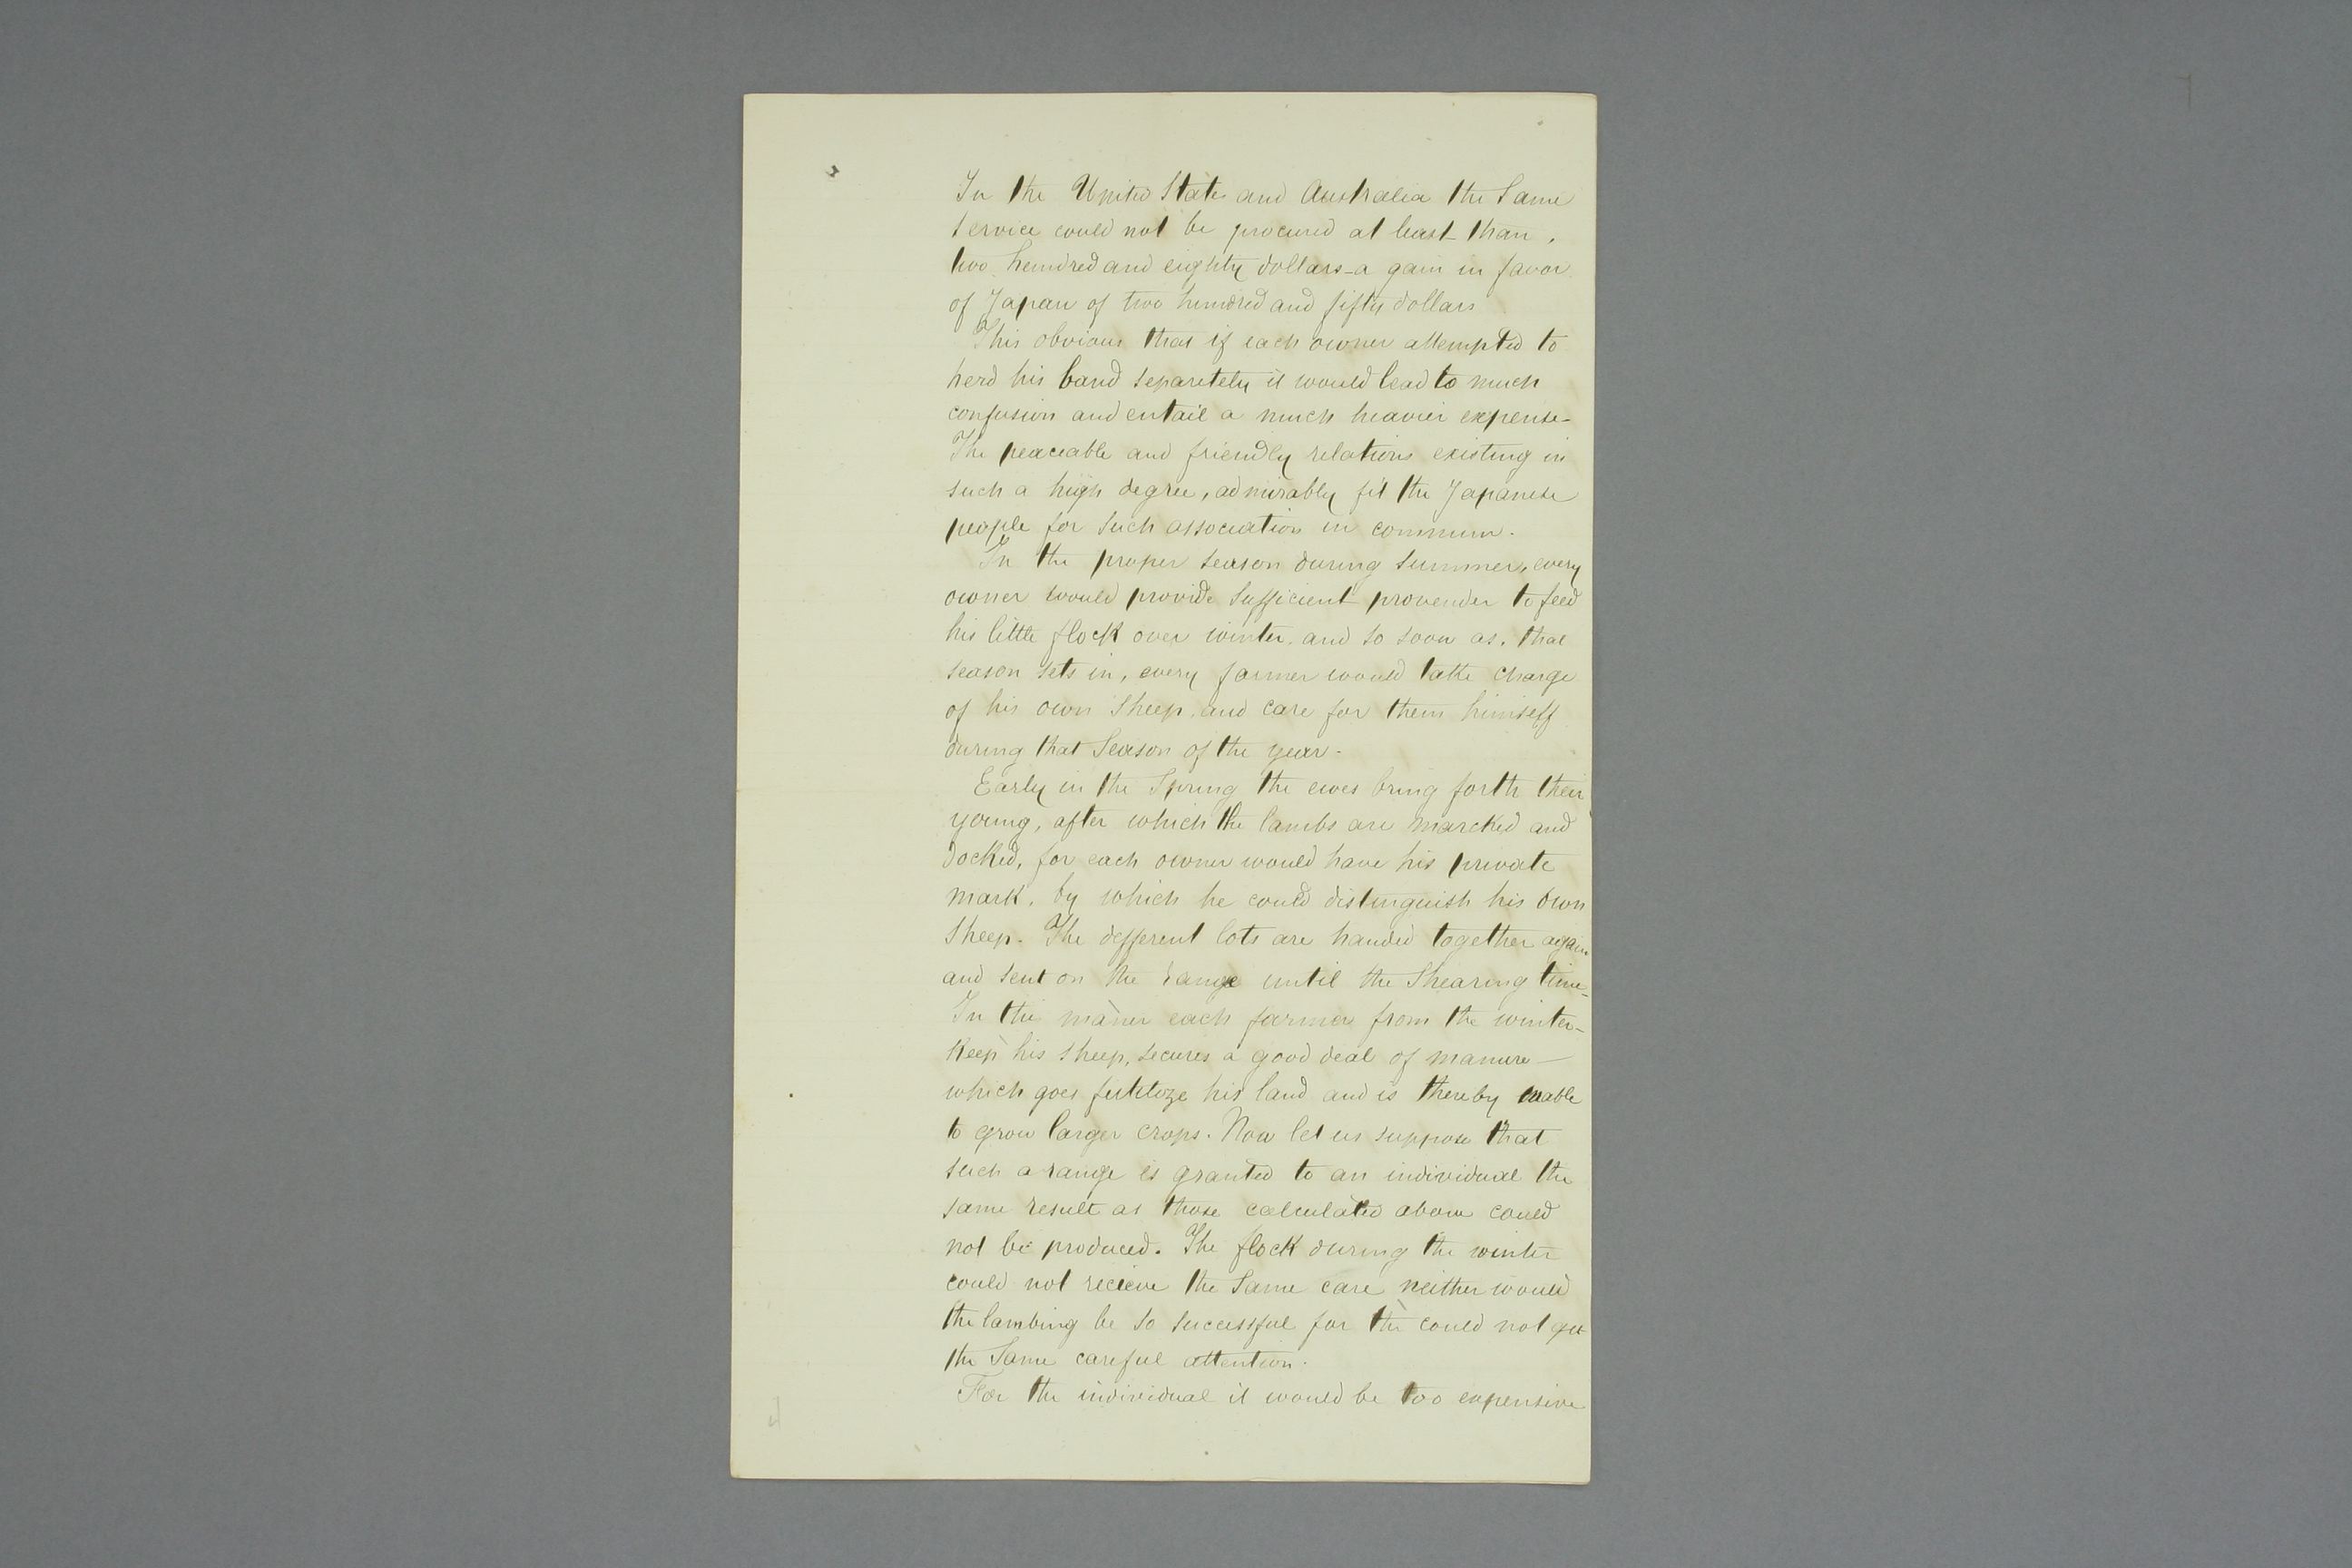 In the United States and Australia the Same
service could not be procured at least than,
two hundred and eighty dollars_a gain in favor
of Japan of two hundred and fifty dollars
This obvious that if each owner attempted to
herd his band separetely it would lead to much
confusion and entail a much heavier expense-
The peaceable and friendly relations existing in
such a high degree, admirably fit the Japanese
people for such association in commun.
In the proper season during summer, every
owner would provide sufficient provender to feed
his little flock over winter, and so soon as, that
season sets in, every farmer would take charge
of his own Sheep, and care for them himself
during that Season of the year-
Early in the Spring the ewes bring forth their
young, after which the lambs are marcked and
docked, for each owner would have his private
mark, by which he could distinguish his own
Sheep. The defferent lots are handed together again
and sent on the range until the Shearing time-
In this maner each farmer from the winter-
keep his sheep, secures a good deal of manure-
which goes his land and is thereby enable
to grow larger crops. Now let us suppose that
such a range is granted to an individual the
same result as those calculated above could
not be produced. The flock during the winter
could not recieve the Same care neither would
the lambing be so successful for the could not get
the Same careful attention.
For the individual it would be too expensive